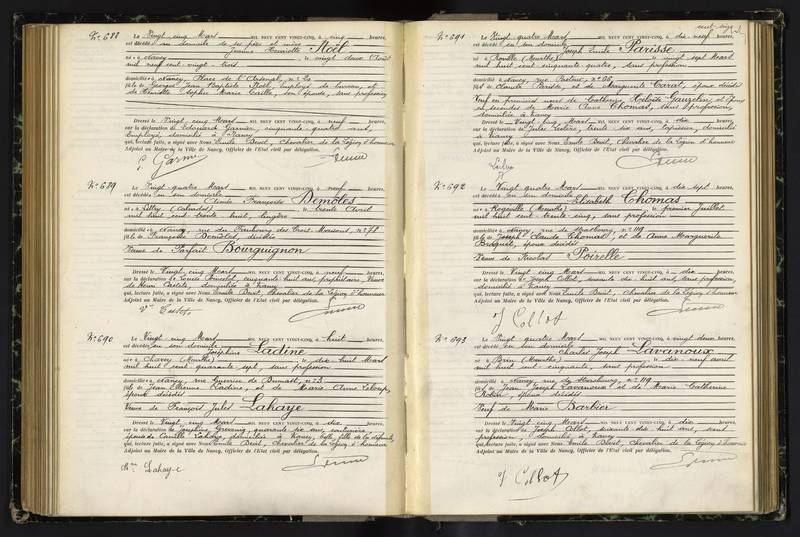 No 688
Le Vingt cinq Mars MIL NEUF CENT VINGT-CINQ, à cinq heures,
est décédée au domicile de ses père et mère
Jeanne Henriette Noël
née à Nancy, le vingt deux Avril
mil neuf cent vingt trois
domiciliée à Nancy, Place de l'Arsenal, no
fille de Georges Jean Baptiste Noël, employé de bureau, et
de Henriette Sophie Marie Caille, son épouse, sans profession
Dressé le Vingt cinq Mars MIL NEUF CENT VINGT-CINQ, à neuf heures,
sur la déclaration de Edouard Garnier, cinquante quatre ans,
Employé, domicilié à Nancy
qui, lecture faite, a signé avec Nous Emile Chevalier de la Légion d'honneur
Adjoint au Maire de la Ville de Nancy, Officier de l'Etat civil par délégation.
No 689
Le Vingt quatre Mars MIL NEUF CENT VINGT-CINQ, à neuf heures,
est décédée en son domicile
Françoise Benoîte
née à le trente Avril
mil huit cent trente huit, lingère
domiciliée à Nancy, rue du Faubourg des Trois Maisons, no 78
fille de Françoise décédée
Veuve de Parfait Bourguignon
Dressé le Vingt cinq Mars MIL NEUF CENT VINGT-CINQ, à neuf heures,
sur la déclaration de Louise cinquante huit ans, propriétaire, Veuve
de Henri domiciliée à Nancy
qui, lecture faite, a signé avec Nous Emile Chevalier de la Légion d'honneur
Adjoint au Maire de la Ville de Nancy, Officier de l'Etat civil par délégation.
No 690
Le Vingt cinq Mars MIL NEUF CENT VINGT-CINQ, à huit heures,
est décédée en son domicile
Joséphine Ladine
née à (Meurthe) le dix huit Mars
mil huit cent quarante sept, sans profession
domiciliée à Nancy, rue no 3
fille de Jean Etienne Ladine, et de Marie Anne
époux décédés
Veuve de François Jules Lahaye
Dressé le Vingt cinq Mars MIL NEUF CENT VINGT-CINQ, à dix heures,
sur la déclaration de Joséphine quarante six ans, couturière,
épouse de Camille Lahaye, domiciliée à Nancy, belle fille de la défunte,
qui, lecture faite, a signé avec Nous Emile Chevalier de la Légion d'honneur
Adjoint au Maire de la Ville de Nancy, Officier de l'Etat civil par délégation.
Lahaye
No 691
Le Vingt quatre Mars MIL NEUF CENT VINGT-CINQ, à dix-neuf heures,
est décédé en son domicile
Joseph Emile Parisse
né à (Meurthe) le vingt sept Mars
mil huit cent cinquante quatre, sans profession
domicilié à Nancy, rue Pasteur, no
fils de Claude Parisse, et de Marguerite Carat, époux décédés
Veuf en premières noces de Catherine et époux
en secondes de Marie Thomas, sans profession,
domiciliée à Nancy
Dressé le Vingt cinq Mars MIL NEUF CENT VINGT-CINQ, à dix heures,
sur la déclaration de Jules trente six ans, tapissier, domicilié
à Nancy
qui, lecture faite, a signé avec Nous Emile Chevalier de la Légion d'honneur
Adjoint au Maire de la Ville de Nancy, Officier de l'Etat civil par délégation.
No 692
Le Vingt quatre Mars MIL NEUF CENT VINGT-CINQ, à dix sept heures,
est décédée en son domicile
Elisabeth Thomas
née à Rogéville (Meurthe) le premier Juillet
mil huit cent trente cinq, sans profession
domiciliée à Nancy, rue de Strasbourg, no 119
fille de Joseph Claude Thomas, et de Anne Marguerite
époux décédés
Veuve de Nicolas Poirelle
Dressé le Vingt cinq Mars MIL NEUF CENT VINGT-CINQ, à dix heures,
sur la déclaration de Joseph Collot, soixante dix huit ans, sans profession,
domicilié à Nancy
qui, lecture faite, a signé avec Nous Emile Chevalier de la Légion d'honneur
Adjoint au Maire de la Ville de Nancy, Officier de l'Etat civil par délégation.
J Collot
No 693
Le Vingt quatre Mars MIL NEUF CENT VINGT-CINQ, à vingt deux heures,
est décédé en son domicile
Charles Joseph Lavanoux
né à Brin (Meurthe) le dix neuf avril
mil huit cent cinquante, sans profession
domicilié à Nancy, rue de Strasbourg, no 119
fils de Jean Joseph Lavanoux et de Marie Catherine
Robin, époux décédés
Veuf de Marie Barbier
Dressé le Vingt cinq Mars MIL NEUF CENT VINGT-CINQ, à dix heures,
sur la déclaration de Joseph Collot, soixante dix huit ans, sans
profession, domicilié à Nancy
qui, lecture faite, a signé avec Nous Emile Chevalier de la Légion d'honneur
Adjoint au Maire de la Ville de Nancy, Officier de l'Etat civil par délégation.
J Collot